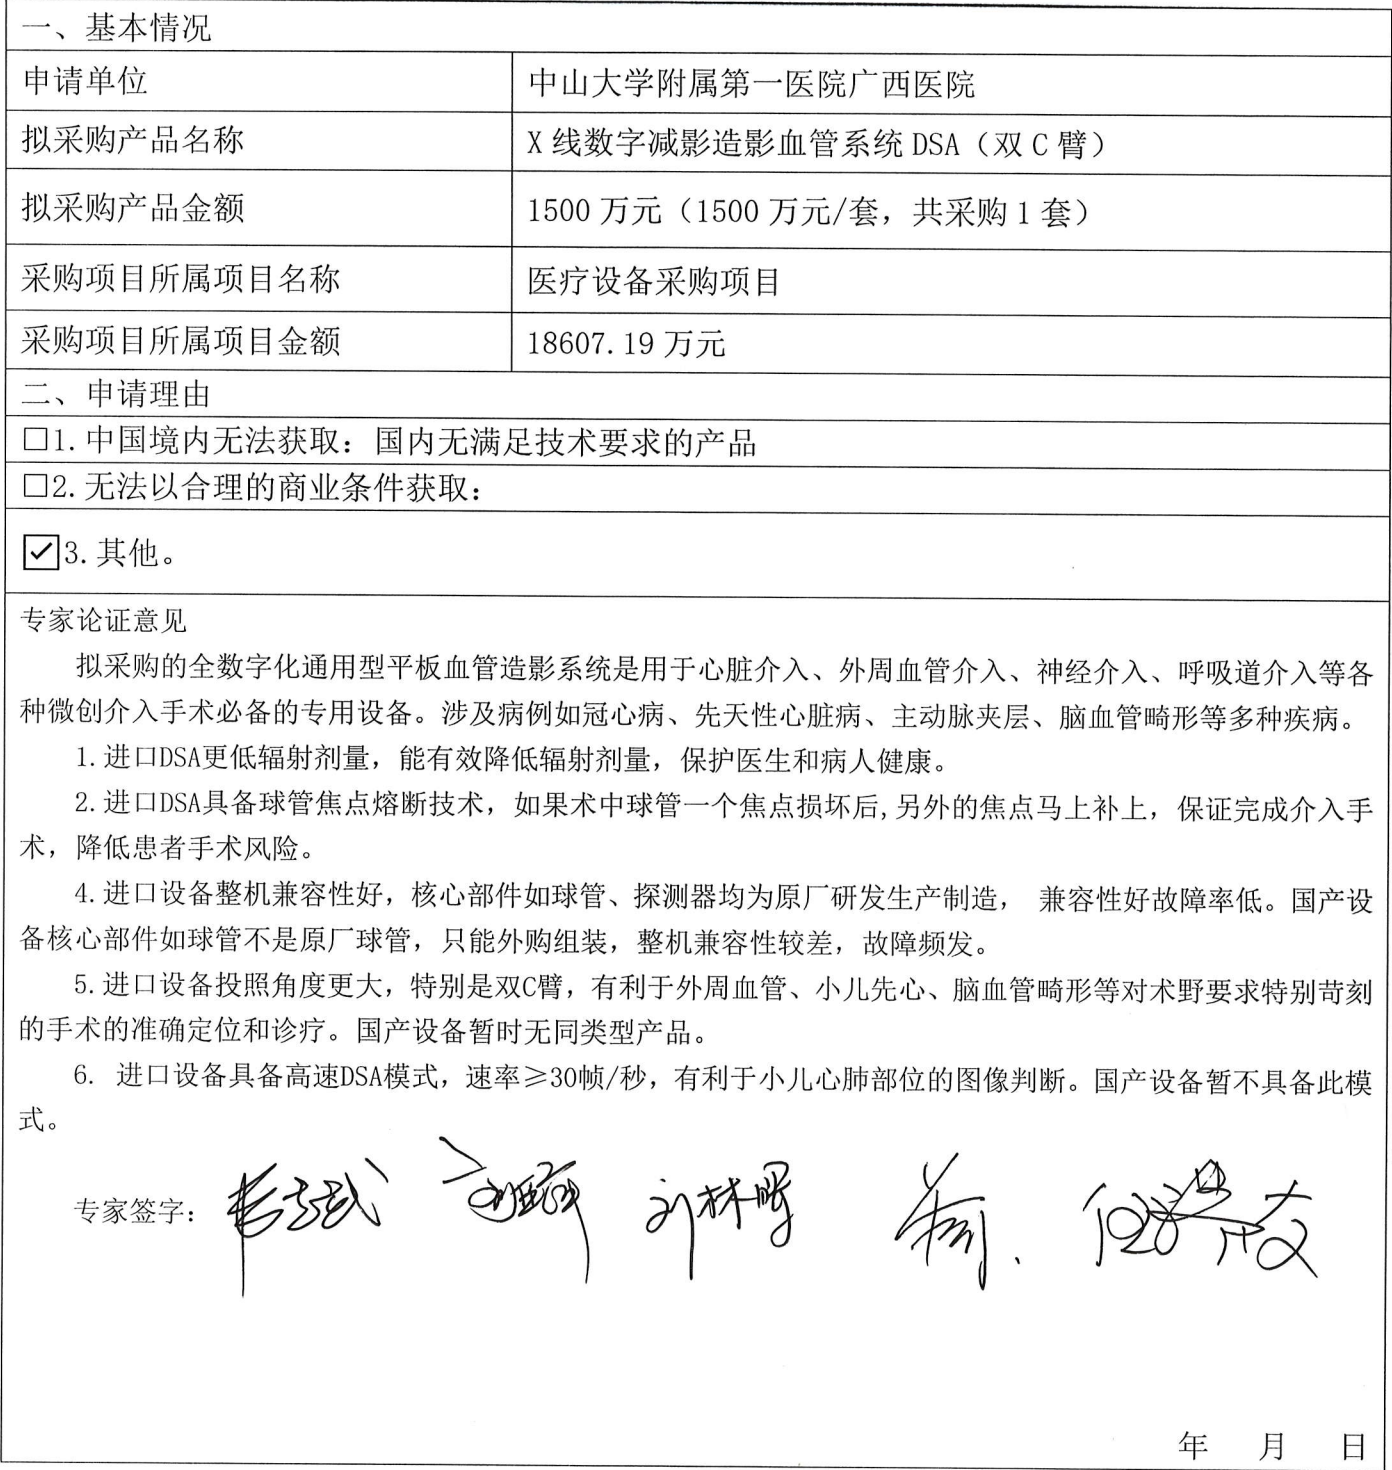 一、基本情况
申请单位 中山大学附属第一医院广西医院
拟采购产品名称 X线数字减影造影血管系统DSA（双C臂）
拟采购产品金额 1500万元（1500万元/套，共采购1套）
采购项目所属项目名称 医疗设备采购项目
采购项目所属项目金额 18607.19万元
二、申请理由
□1.中国境内无法获取：国内无满足技术要求的产品
□2.无法以合理的商业条件获取：
☑3.其他。
专家论证意见
拟采购的全数字化通用型平板血管造影系统是用于心脏介入、外周血管介入、神经介入、呼吸道介入等各
种微创介入手术必备的专用设备。涉及病例如冠心病、先天性心脏病、主动脉夹层、脑血管畸形等多种疾病。
1.进口DSA更低辐射剂量，能有效降低辐射剂量，保护医生和病人健康。
2.进口DSA具备球管焦点熔断技术，如果术中球管一个焦点损坏后,另外的焦点马上补上，保证完成介入手
术，降低患者手术风险。
4.进口设备整机兼容性好，核心部件如球管、探测器均为原厂研发生产制造， 兼容性好故障率低。国产设
备核心部件如球管不是原厂球管，只能外购组装，整机兼容性较差，故障频发。
5.进口设备投照角度更大，特别是双C臂，有利于外周血管、小儿先心、脑血管畸形等对术野要求特别苛刻
的手术的准确定位和诊疗。国产设备暂时无同类型产品。
6. 进口设备具备高速DSA模式，速率≥30帧/秒，有利于小儿心肺部位的图像判断。国产设备暂不具备此模
式。
专家签字：
年 月 日